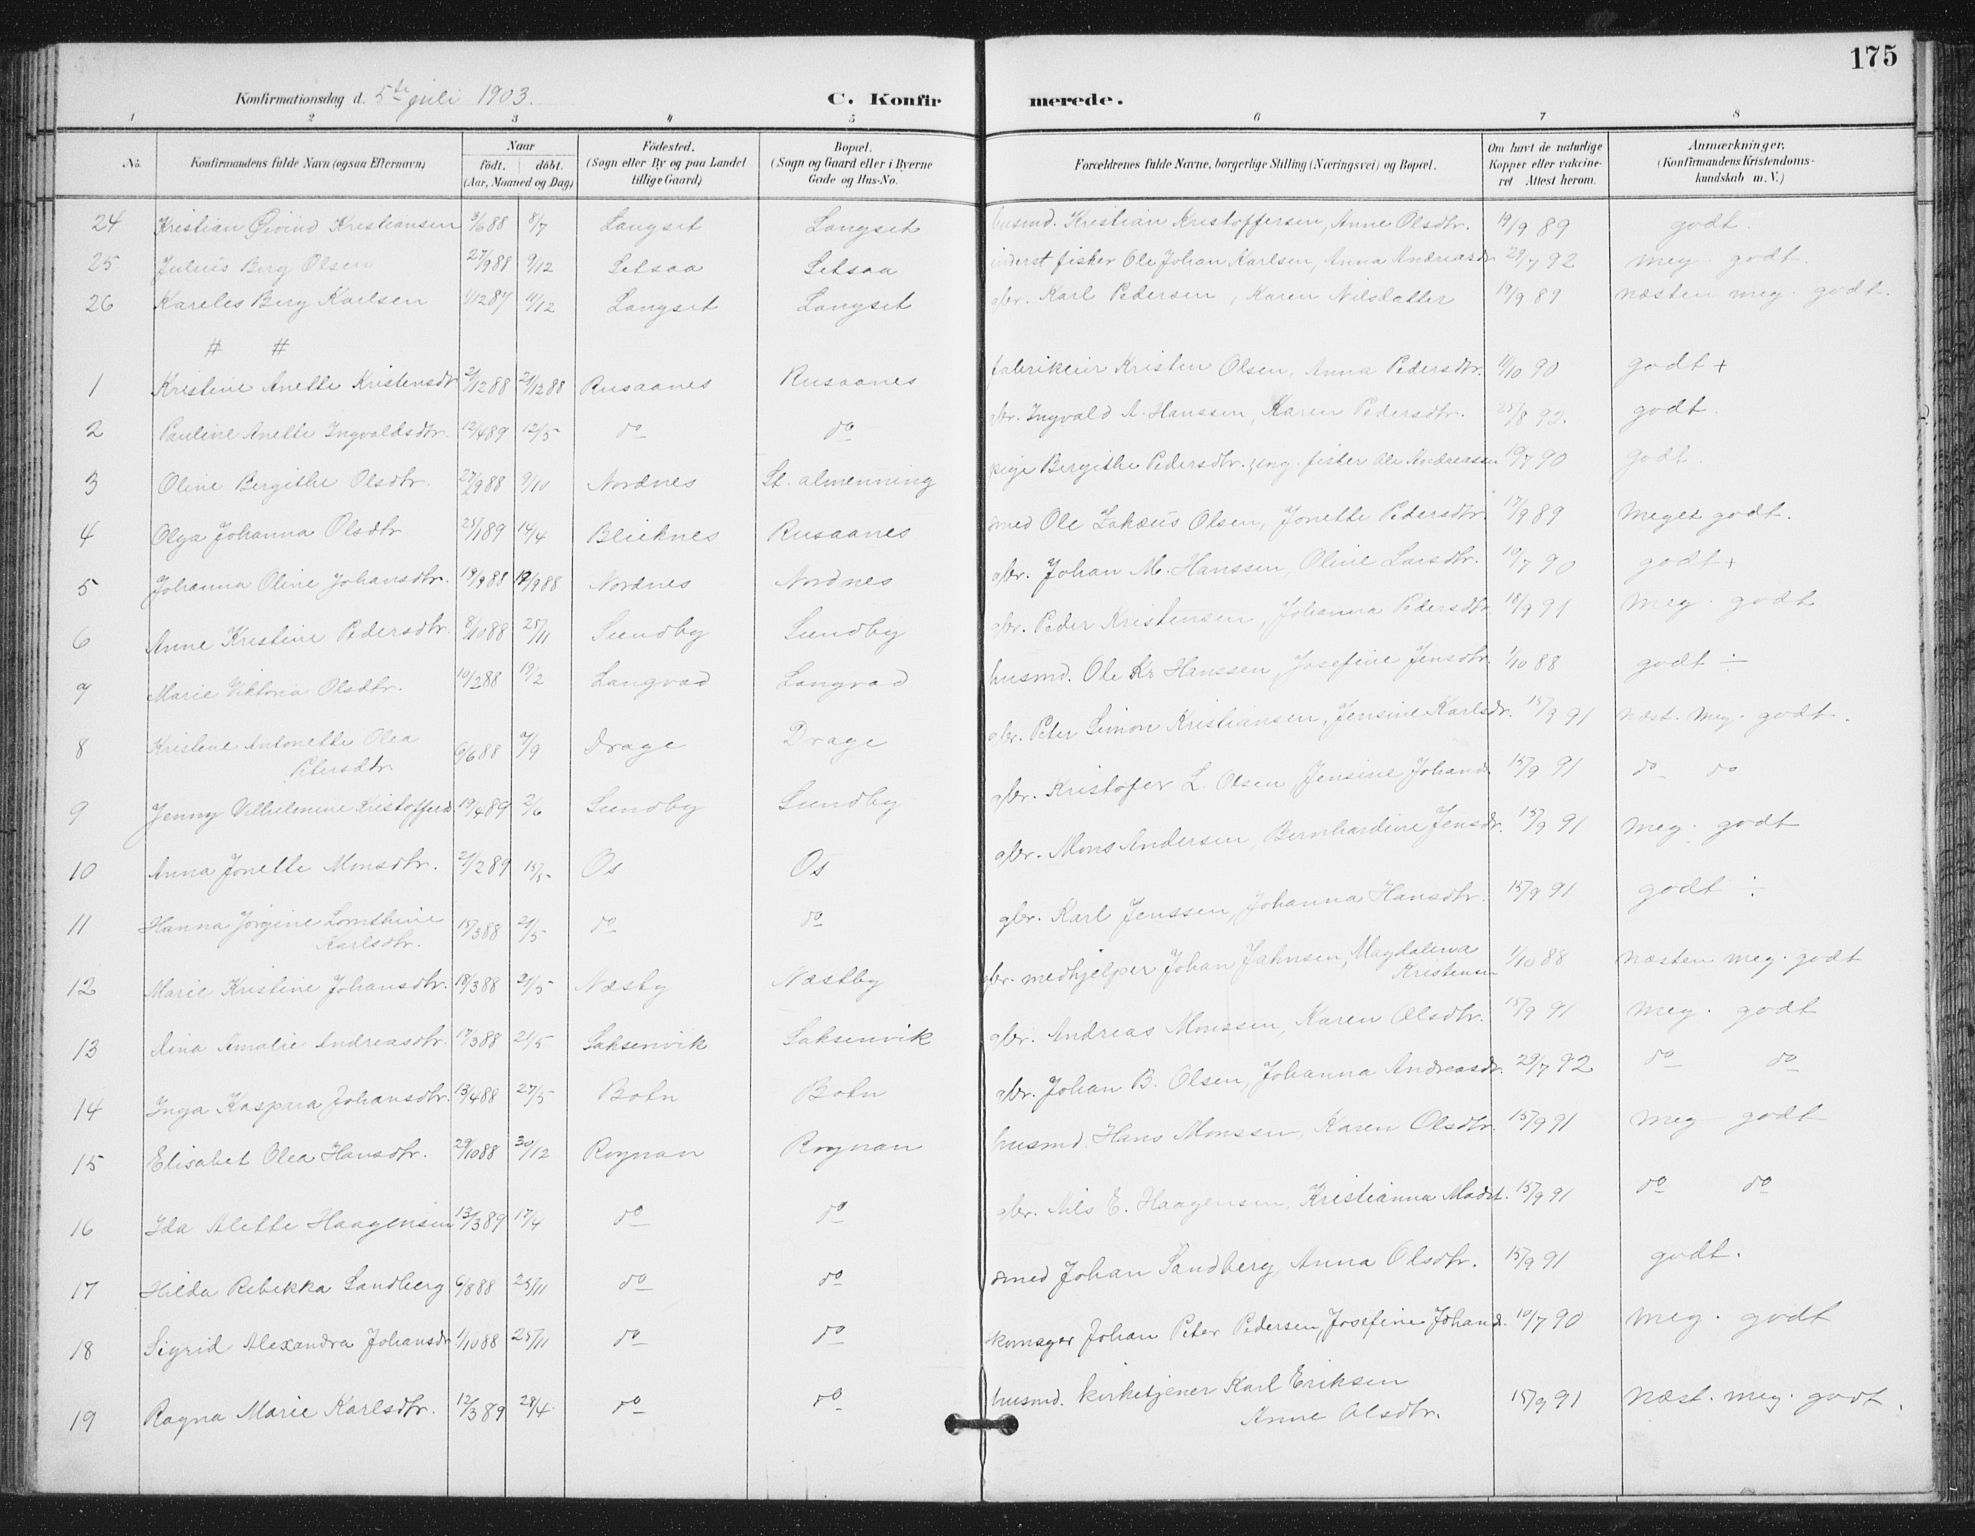 175
Konfirmationsdag d. 5te juli 1903. C. Konfirmerede.
1 2 3 4 5 6 7 8
No. Konfirmandens fulde Navn (ogsaa Efternavn) Naar født. døbt. (Aar, Maaned og Dag) Fødested. (Sogn eller By og paa Landet tillige Gaard) Bopæl. (Sogn og Gaard eller i Byerne Gade og Hus-No. Forældrenes fulde Navne, borgerlige Stilling (Næringsvei) og Bopæl. Om havt de naturlige Kopper eller vakcineret Attest herom. Anmærkninger, (Konfirmandens Kristendomskundskab m. V.)
24 Kristian Øivind Kristiansen 3/6 88 8/7 Langset Langset husmd. Kristian Kristoffersen, Anne Olsdtr. 19/9 89 godt.
25 Julius Berg Olsen 27/9 88 9/12 Setsaa Setsaa inderst fisker Ole Johan Karlsen, Anna Andreasdr 29/7 92 meg. godt.
26 Kareles Berg Karlsen 1/12 87 11/12 Langset Langset gbr. Karl Pedersen, Karen Nilsdatter 19/9 89 næsten meg. godt.
# #
1 Kristine Anette Kristensdtr 2/12 88 26/12 88 Rusaanes Rusaanes fabrikeier Kristen Olsen, Anna Pedersdtr. 11/10 90 godt +
2 Pauline Anette Ingvaldsdtr. 12/4 89 12/5 do do gbr. Ingvald A. Hanssen, Karen Pedersdtr. 25/8 92. godt
3 Oline Bergithe Olsdtr. 27/9 88 9/10 Nordnes St. almenning pige Bergithe Pedersdtr. , ung. fisker Ole Andreassen 19/7 90 godt.
4 Olga Johanna Olsdtr. 25/1 89 14/4 Bleiknes Rusaanes smed Ole Sakæus Olsen, Jonette Pedersdtr. 17/9 89 Meget godt.
5 Johanna Oline Johansdtr. 19/9 88 19/9 88 Nordnes Nordnes gbr. Johan M. Hanssen, Oline Larsdtr. 10/7 90 godt +
6 Anne Kristine Pedersdtr. 8/10 88 25/11 Sundby Sundby gbr. Peder Kristensen, Johanna Pedersdtr. 18/9 91 meg. godt
7 Marie Viktoria Olsdtr. 10/2 88 19/2 Langvad Langvad husmd. Ole Kr Hanssen, Josefine Jensdtr. 1/10 88 godt ÷
8 Kristine Antonette Olea
Petersdtr. 6/6 88 2/9 Drage Drage gbr. Peter Simon Kristiansen, Jensine Karlsdr. 15/9 91 næst. meg. godt.
9 Jenny Vilhelmine Kristoffersd. 19/4 89 2/6 Sundby Sundby gbr. Kristofer L. Olsen, Jensine Johansd. 15/9 91 do do
10 Anna Jonette Monsdtr. 2/2 89 15/5 Os Os gbr. Mons Andersen, Bernhardine Jensdr. 15/9 91 meg. godt
11 Hanna Jørgine
Karlsdtr. 15/3 88 21/5 do do gbr. Karl Jenssen, Johanna Hansdtr. 15/9 91 godt ÷
12 Marie Kristine Johansdtr. 18/3 88 21/5 Næsby Næstby gbr. medhjelper Johan Jahnsen, Magdalena
Kristensen 1/10 88 næsten meg. godt
13 Dina Amalie Andreasdtr. 17/3 88 21/5 Saksenvik Saksenvik gbr. Andreas Monssen, Karen Olsdtr. 15/9 91 meg. godt
14 Inga Kaspara Johansdtr. 13/4 88 27/5 Botn Botn gbr. Johan B. Olsen, Johanna Andreasdr. 29/7 92 do do
15 Elisabet Olea Hansdtr. 29/10 88 30/12 Rognan Rognan husmd. Hans Monssen, Karen Olsdtr. 15/9 91 meg godt
16 Ida Alette Haagensen 13/3 89 17/4 do do gbr. Nils E. Haagensen, Kristianna Madst. 15/9 91 do do
17 Hilda Rebekka Sandberg 6/8 88 25/11 do do smed Johan Sandberg, Anna Olsdtr. 15/9 91 godt.
18 Sigrid Alexandra Johansdr 1/10 88 25/11 do do skomager Johan Peter Pedersen Josefine Johansd. 10/7 90 meg. godt
19 Ragna Marie Karlsdtr. 12/3 89 28/4. do do husmd. kirketjener Karl Eriksen
Anne Olsdtr. 15/9 91 næst. meg. godt.